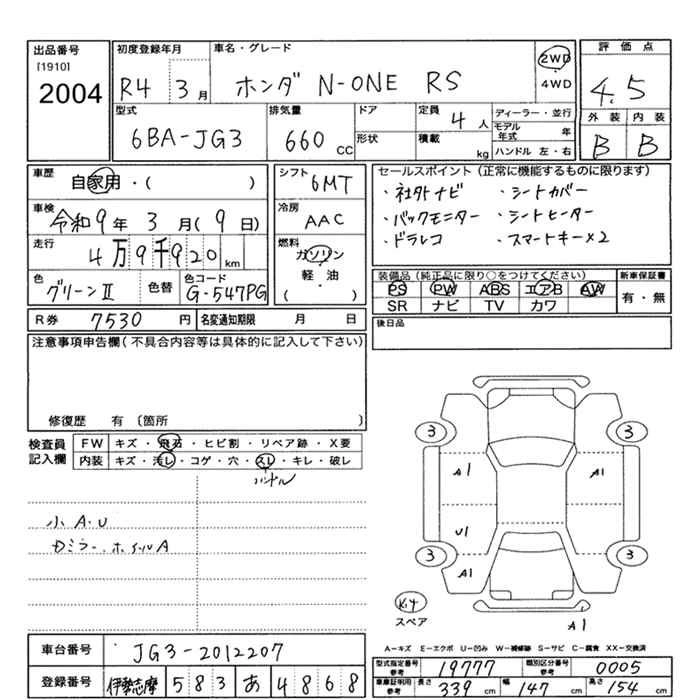 出品番号
[1910]
2004
初度登録年月
R4 3月
車名・グレード
ホンダ N-ONE RS
2WD
4WD
評価点
4.5
外装 内装
B B
型式
6BA-JG3
排気量
660 CC
ドア
形状
定員
4人
積載
kg
ディーラー・並行
モデル年式 年
ハンドル 左・右
車歴
自家用・( )
車検
令和9年3月(9日)
走行
4万9千920km
色
グリーンⅡ
色替
色コード
G-547PG
シフト
6MT
冷房
AAC
燃料
ガソリン
軽・油
( )
セールスポイント(正常に機能するものに限ります)
・社外ナビ ・シートカバー
・バックモニター ・シートヒーター
・ドラレコ ・スマートキー×2
装備品(純正品に限り○をつけてください)
PS PW ABS エアB AW
SR ナビ TV カワ
新車保証書
有・無
R券 7530円 名変通知期限 月 日
後日品
注意事項申告欄(不具合内容等は具体的に記入して下さい)
修復歴 有〔箇所 〕
検査員記入欄
FW キズ・飛石・ヒビ割・リペア跡・X要
内装 キズ・汚レ・コゲ・穴・スレ・キレ・破レ
ハンドル
小A・U
Dミラー・ホイルA
3 3
A1 A1
U1
3 3
A1
キット
スペア
A1
A-キズ E-エクボ U-凹み W-補修跡 S-サビ C-腐食 XX-交換済
車台番号 JG3-2012207
登録番号 伊勢志摩 583 あ 4868
型式指定番号 参考 19777
類別区分番号 参考 0005
車庫証明用 参考 長さ 339cm 幅 147cm 高さ 154cm